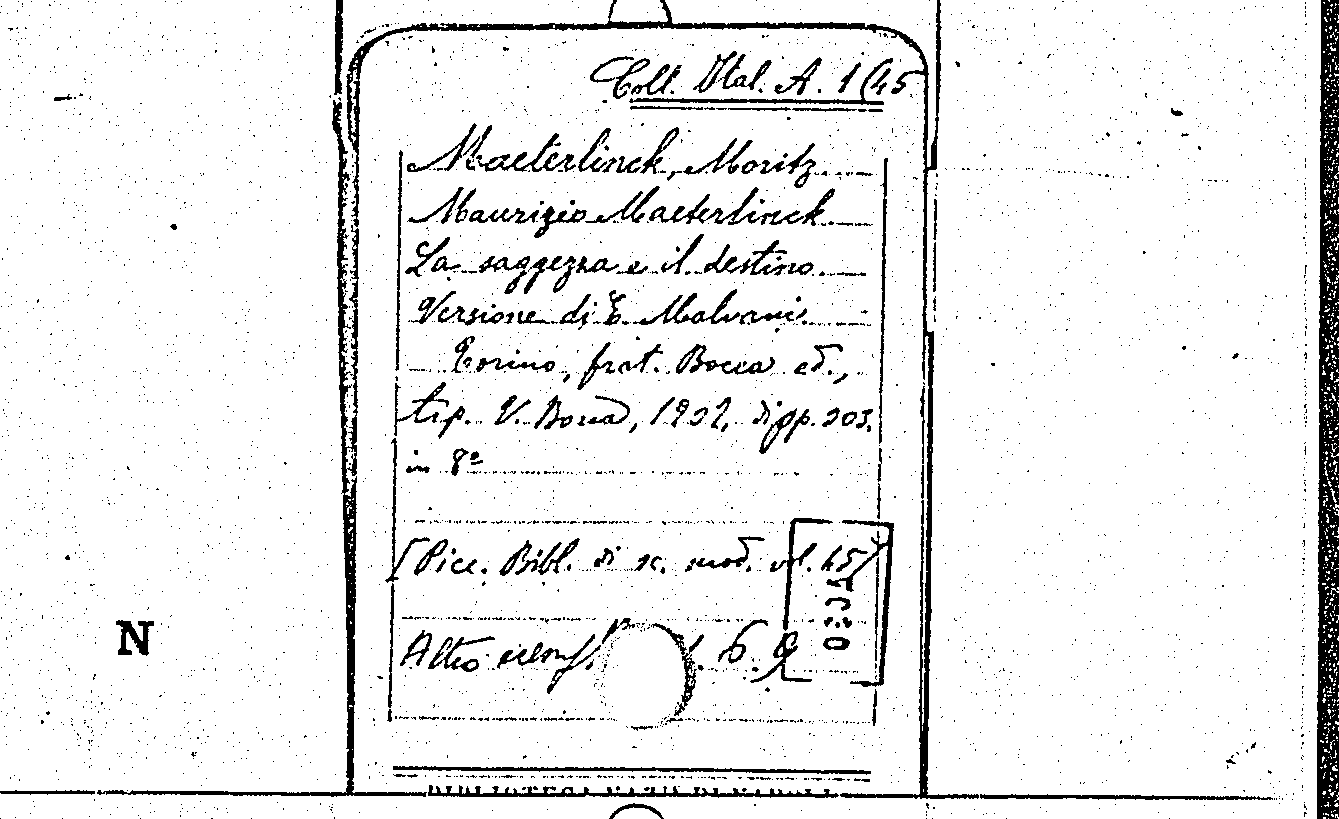 Coll. Ital. A. 1 (45
Maeterlinck, Moritz
Maurizio Maeterlinck
La saggezza e il destino
Versione di E. Malvani
Torino, frat. Bocca ed.,
tip. V. Bona, 1902, di pp. 203.
in 8º
[Picc. Bibl. di sc. mod. vol. 45]
Altro
N
BIBLIOTECA NAZ. DI NAPOLI